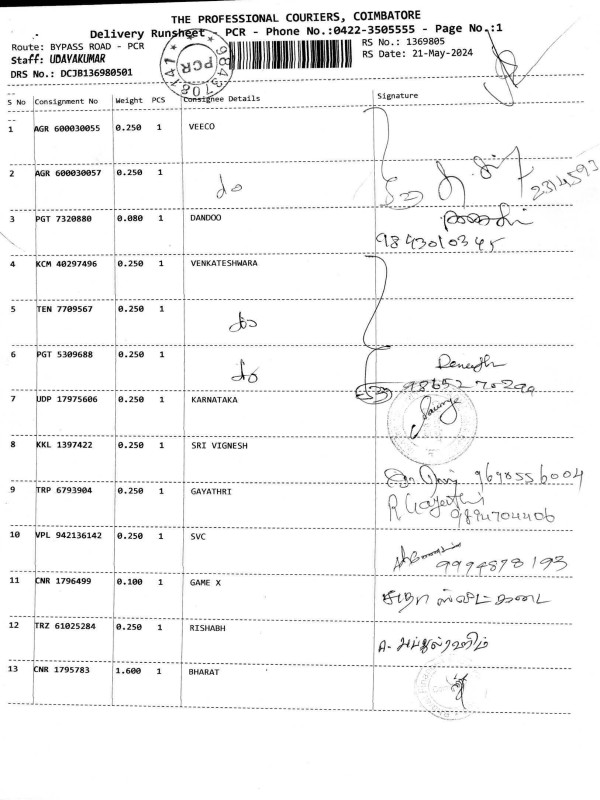 THE PROFESSIONAL COURIERS, COIMBATORE
Delivery Runsheet - PCR - Phone No.:0422-3505555 - Page No.:1
Route: BYPASS ROAD - PCR
RS No.: 1369805
Staff: UDAYAKUMAR
RS Date: 21-May-2024
DRS No.: DCJB136980501
PCR
S No Consignment No Weight PCS Consignee Details Signature
1 AGR 600030055 0.250 1 VEECO
2 AGR 600030057 0.250 1 do
2314593
3 PGT 7320880 0.080 1 DANDOO
9843010345
4 KCM 40297496 0.250 1 VENKATESHWARA
5 TEN 7709567 0.250 1 do
6 PGT 5309688 0.250 1 do
7 UDP 17975606 0.250 1 KARNATAKA
8 KKL 1397422 0.250 1 SRI VIGNESH
9698556004
9 TRP 6793904 0.250 1 GAYATHRI
R Gayathri
9894704406
10 VPL 942136142 0.250 1 SVC
9994878193
11 CNR 1796499 0.100 1 GAME X
12 TRZ 61025284 0.250 1 RISHABH
A. அப்துல்ரஹீம்
13 CNR 1795783 1.600 1 BHARAT